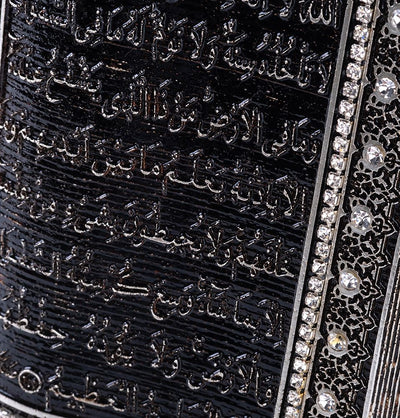 اَللّٰهُ لَا
لَا تَأْخُذُهُ سِنَةٌ وَلَا نَوْمٌ لَهُ مَا فِي السَّمٰوَاتِ
وَمَا فِي الْاَرْضِ مَنْ ذَا الَّذِي يَشْفَعُ عِنْدَهُ
اِلَّا بِاِذْنِهِ يَعْلَمُ مَا بَيْنَ اَيْدِيهِمْ وَمَا
خَلْفَهُمْ وَلَا يُحِيطُونَ بِشَيْءٍ مِنْ
اِلَّا بِمَا شَاءَ وَسِعَ كُرْسِيُّهُ
وَالْاَرْضَ وَلَا يَؤُدُهُ حِفْظُهُمَا
الْعَظِيمُ